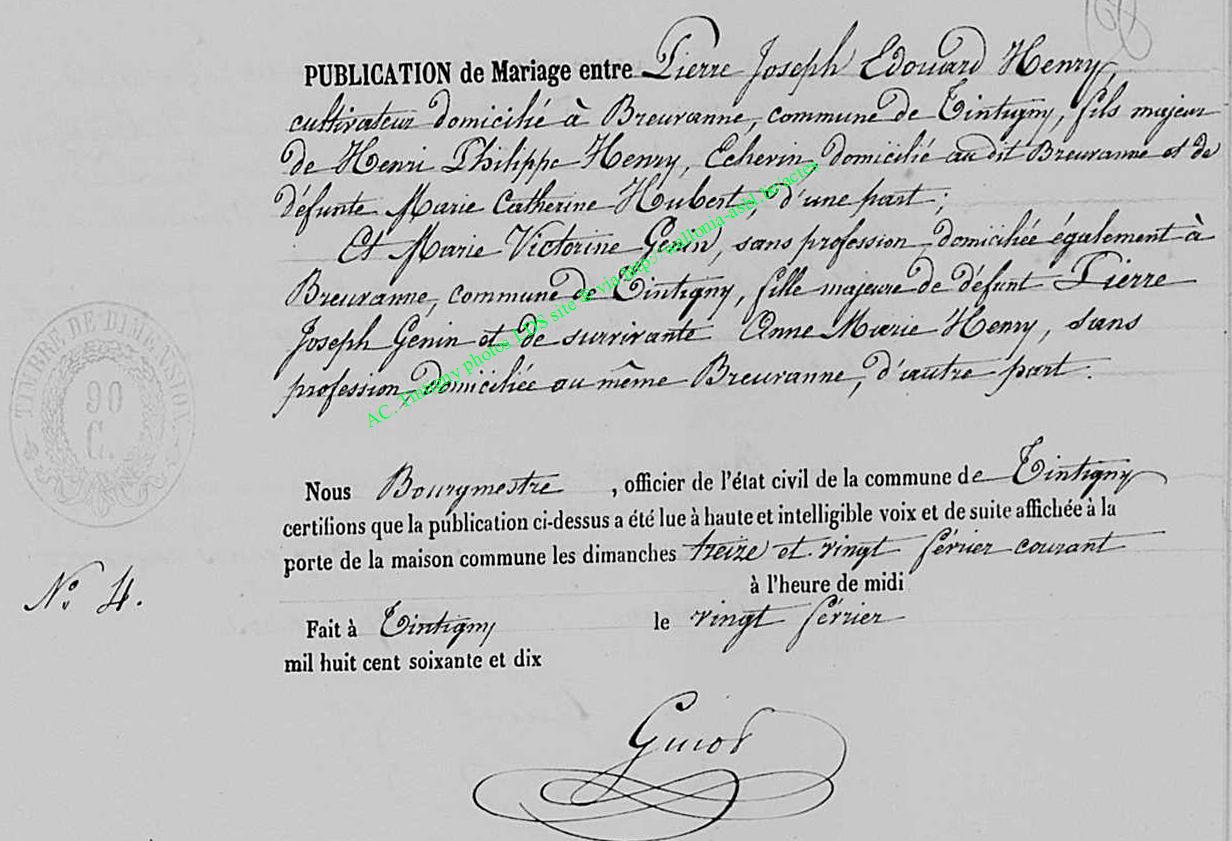 PUBLICATION de Mariage entre Pierre Joseph Edouard Henry,
cultivateur domicilié à Breuvanne, commune de Tintigny, fils majeur
de Henri Philippe Henry, Echevin, domicilié au dit Breuvanne et de
défunte Marie Catherine Hubert, d'une part;
Et Marie Victorine Genin, sans profession, domiciliée également à
Breuvanne, commune de Tintigny, fille majeure de défunt Pierre
Joseph Genin et de survivante Anne Marie Henry, sans
profession, domiciliée au même Breuvanne, d'autre part.
TIMBRE DE DIMENSION
90
C.
Nous Bourgmestre, officier de l'état civil de la commune de Tintigny
certifions que la publication ci-dessus a été lue à haute et intelligible voix et de suite affichée à la
porte de la maison commune les dimanches treize et vingt février courant
à l'heure de midi
No. 4.
Fait à Tintigny le vingt février
mil huit cent soixante et dix
Guiot
AC. Tintigny photos LDS site via http://wallonia-asbl.be/actes